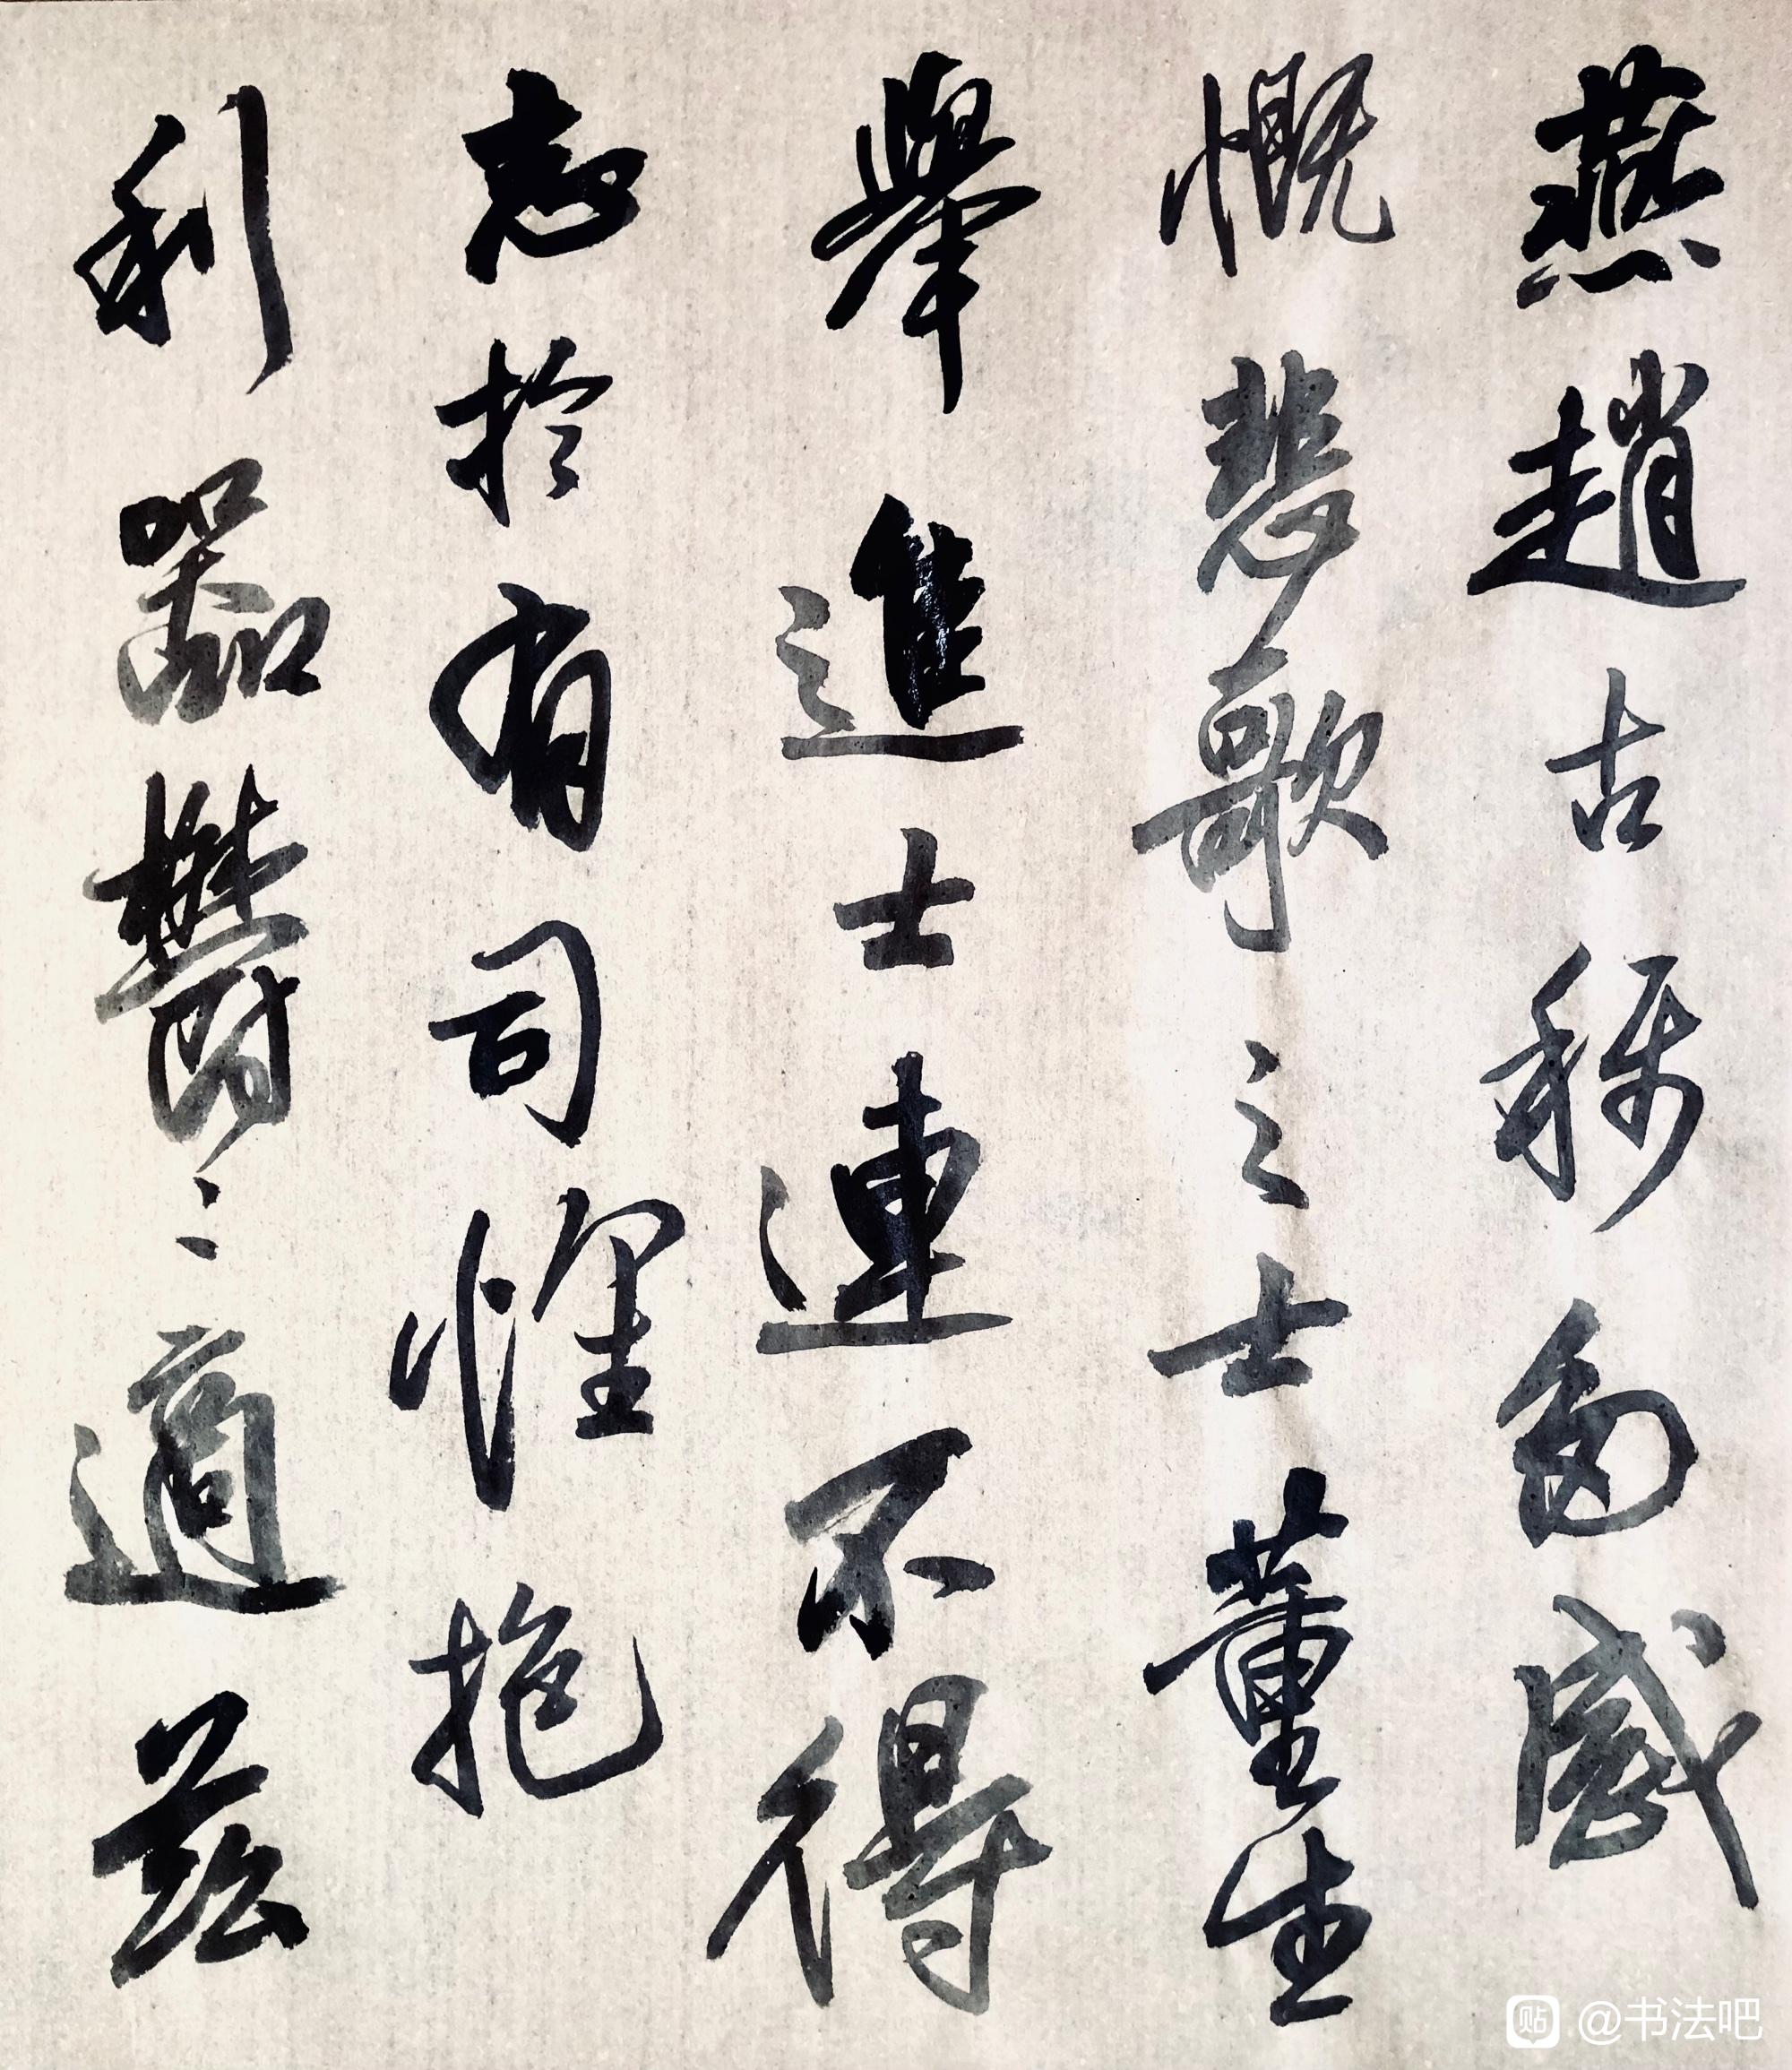 燕趙古稱多感
慨悲歌之士董生
舉進士連不得
志於有司懷抱
利器鬱〻適茲
貼 @书法吧